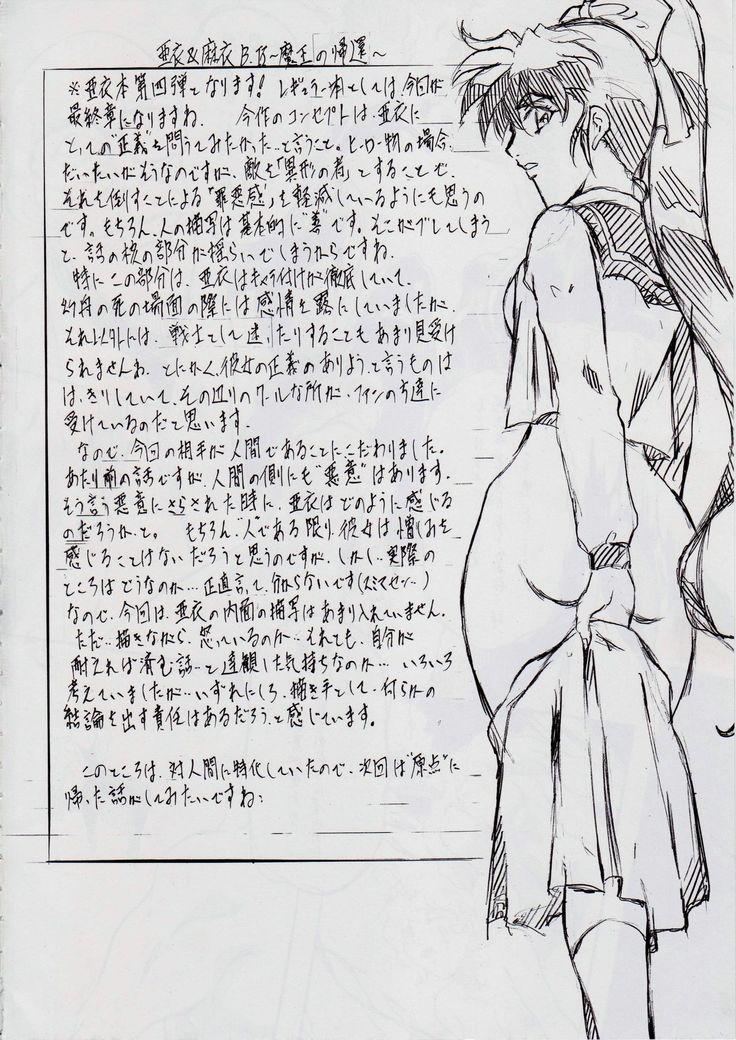 亜衣&麻衣B.B~魔王「の帰還~
※亜衣本第四弾となります! レギュラー本としては、今回が
最終章になりますね. 今作のコンセプトは、亜衣に
とっての"正義"を問うてみたかった…と言うこと。ヒーロー物の場合、
だいたいがそうなのですが、敵を「異形の者」とすることで、
それを倒すことによる「罪悪感」を軽減しているようにも思うの
です。もちろん、人の描写は基本的に"善"です。そこがブレてしまう
と、話の核の部分が揺らいでしまうからですね.
特にこの部分は、亜衣はキャラ付けが徹底していて.
幻舟の死の場面の際には感情を露にしていましたが.
それ以外には、戦士として迷ったりすることもあまり見受け
られませんね. とにかく、彼女の正義のありようと言うものは
はっきりしていて、その辺りのクールな所が、ファンの方達に
受けているのだと思います.
なので、今回の相手が人間であることにこだわりました。
あたり前の話ですが、人間の側にも"悪意"はあります.
そう言う悪意にさらされた時に、亜衣はどのように感じる
のだろうか、と。 もちろん、"人"である限り、彼女は憎しみを
感じることはないだろうと思うのですが、しかし…実際の
ところはどうなのか…正直言って、分からないです(スミマセン…)
なので、今回は、亜衣の内面の描写はあまり入れていません.
ただ…描きながら、怒っているのか…それても、自分が
耐えれば済む話…と達観した気持ちなのか… いろいろ
考えていましたが…いずれにしろ、描き手として、何らかの
結論を出す責任はあるだろう、と感じています。
このところは、対人間に特化していたので、次回は"原点"に
帰った話がしてみたいですね: